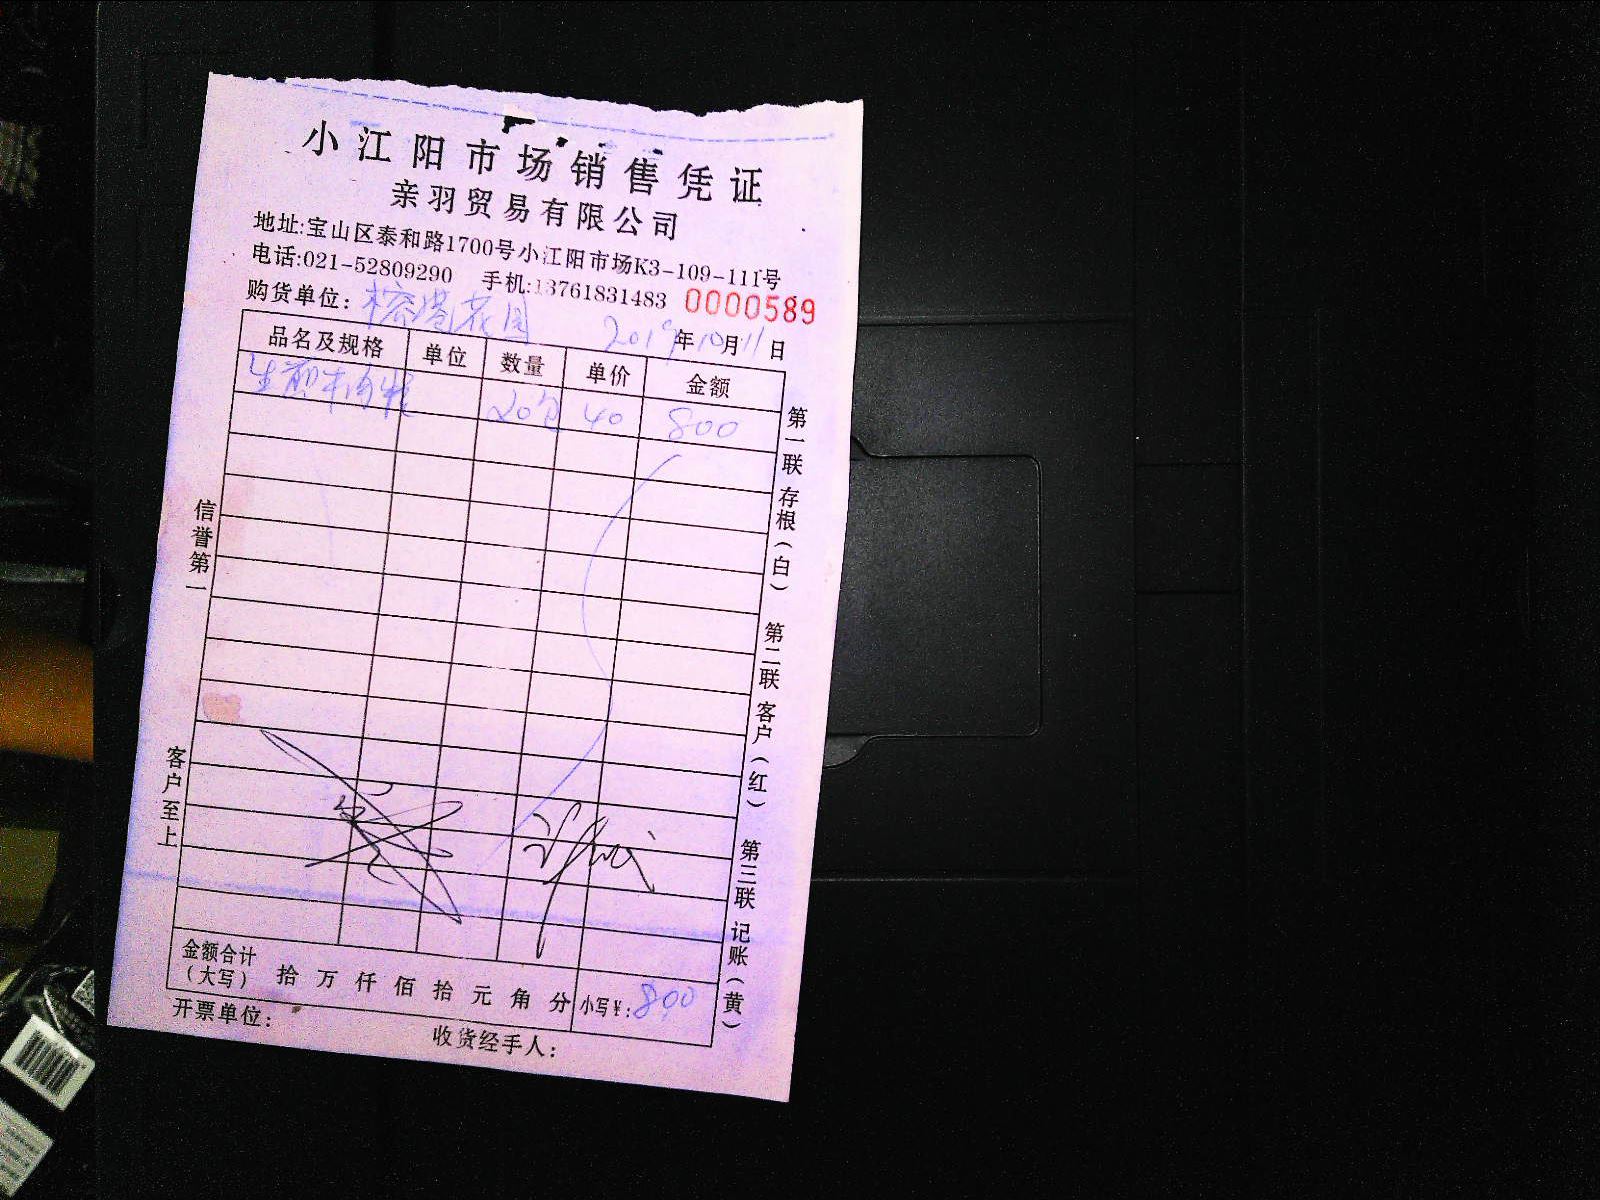 小江阳市场销售凭证
亲羽贸易有限公司
地址:宝山区泰和路1700号小江阳市场K3-109-111号
电话:021-52809290 手机:13761831483 0000589
购货单位: 花园 2019年10月11日
品名及规格 单位 数量 单价 金额
生煎 20包 40 800
信誉第一
客户至上
第一联 存根(白) 第二联 客户(红) 第三联 记账(黄)
金额合计
(大写) 拾 万 仟 佰 拾 元 角 分 小写¥: 800
开票单位: 收货经手人: